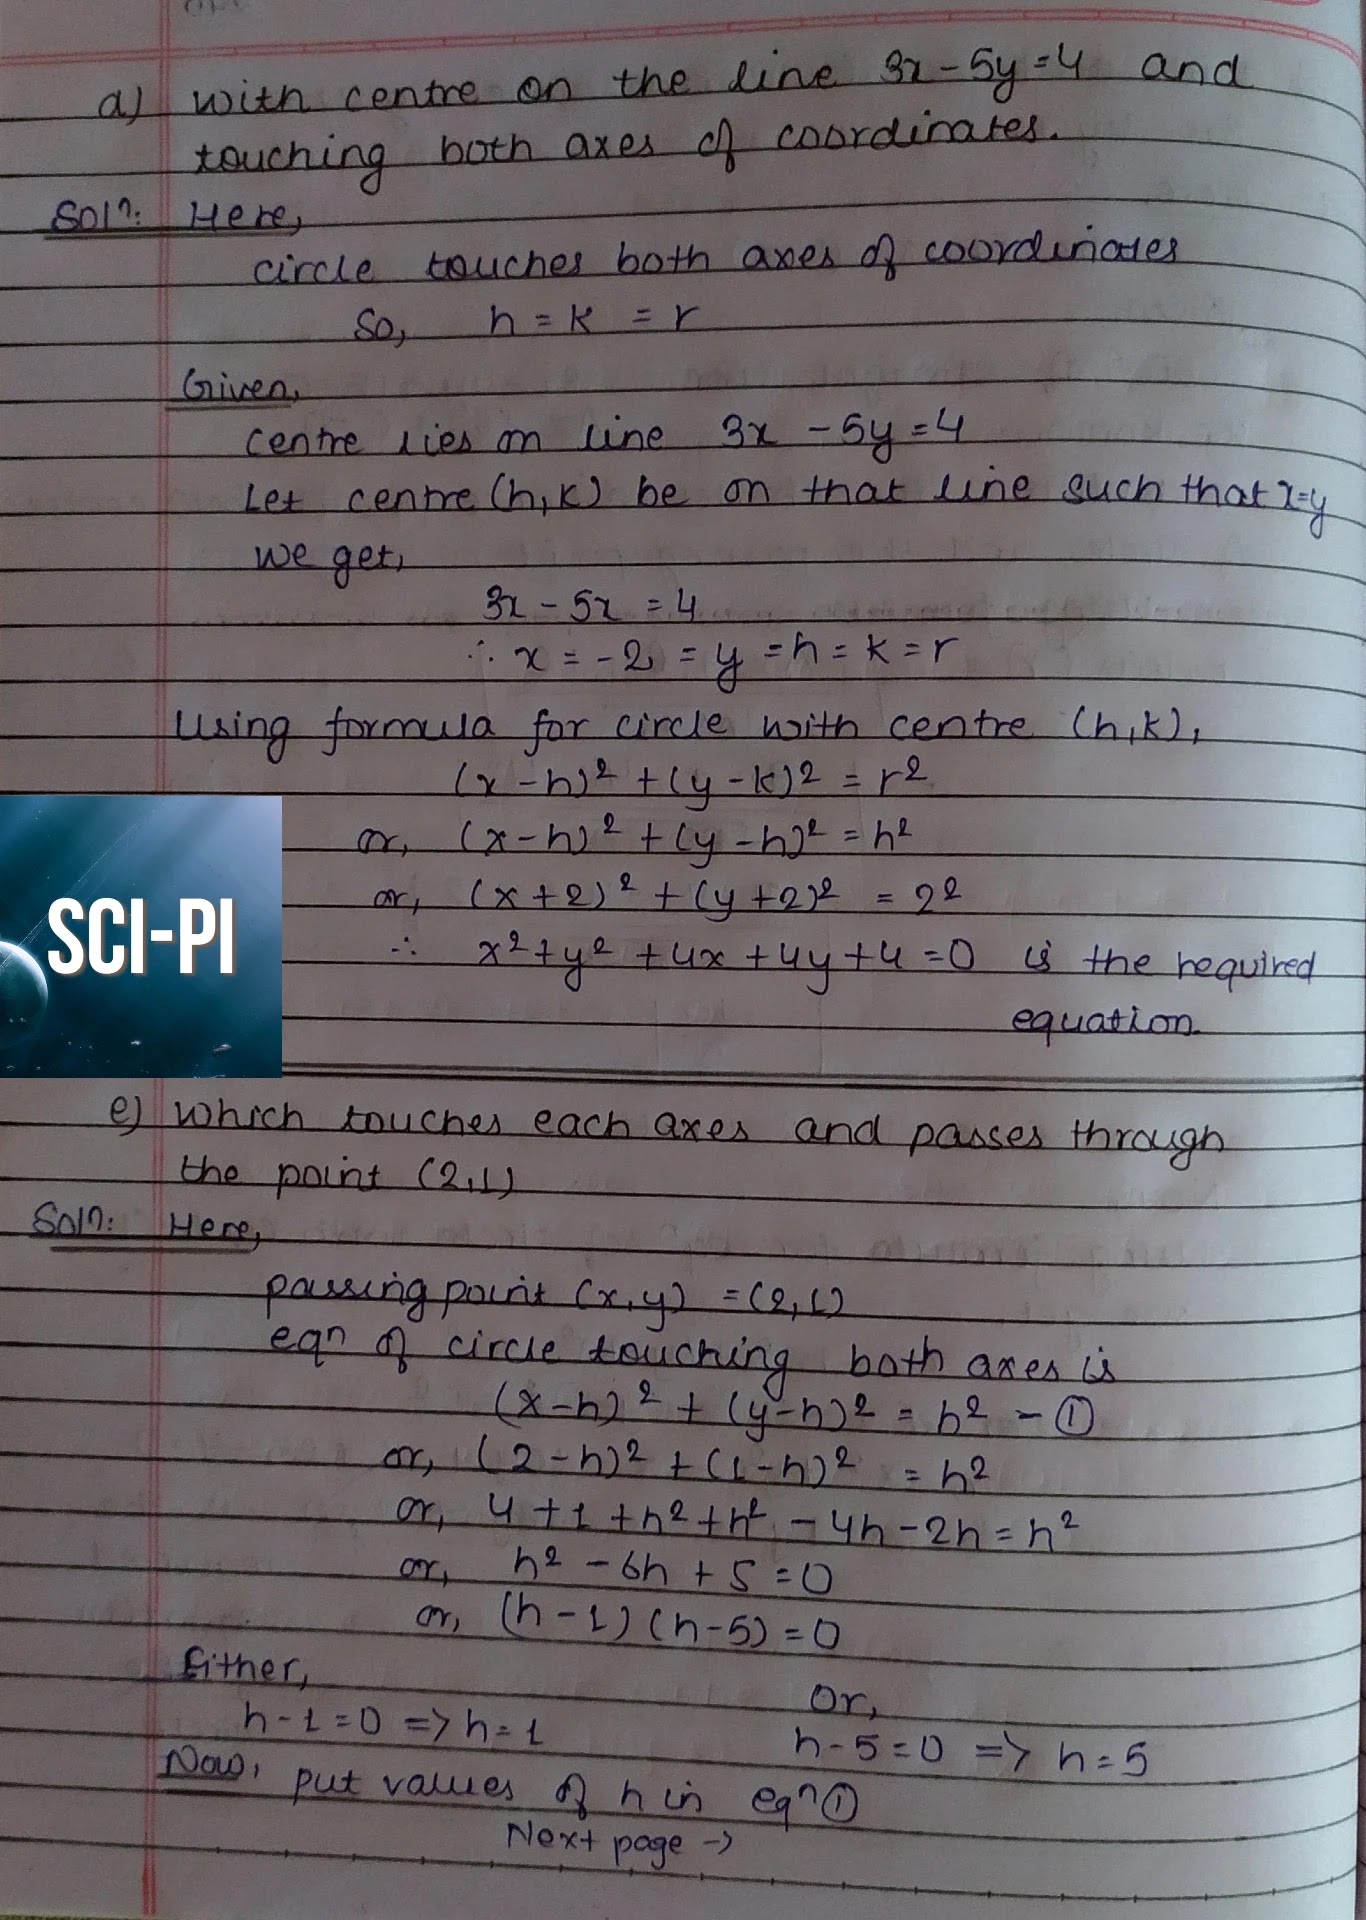 d) with centre on the line 3x-5y=4 and
touching both axes of coordinates.
Solⁿ: Here,
circle touches both axes of coordinates
So, h = k = r
Given,
centre lies on line 3x - 5y = 4
Let centre (h,k) be on that line such that x=y
we get,
3x - 5x = 4
∴ x = -2 = y = h = k = r
Using formula for circle with centre (h,k),
(x-h)² + (y-k)² = r²
or, (x-h)² + (y-h)² = h²
or, (x+2)² + (y+2)² = 2²
SCI-PI
∴ x²+y²+4x+4y+4=0 is the required
equation.
e) Which touches each axes and passes through
the point (2,1)
Solⁿ: Here,
passing point (x,y) = (2,1)
eqⁿ of circle touching both axes is
(x-h)² + (y-h)² = h² - ①
or, (2-h)² + (1-h)² = h²
or, 4+1+h²+h²-4h-2h=h²
or, h²-6h+5=0
or, (h-1)(h-5)=0
Either,
Or,
h-1=0 => h=1
h-5=0 => h=5
Now, put values of h in eqⁿ①
Next page →